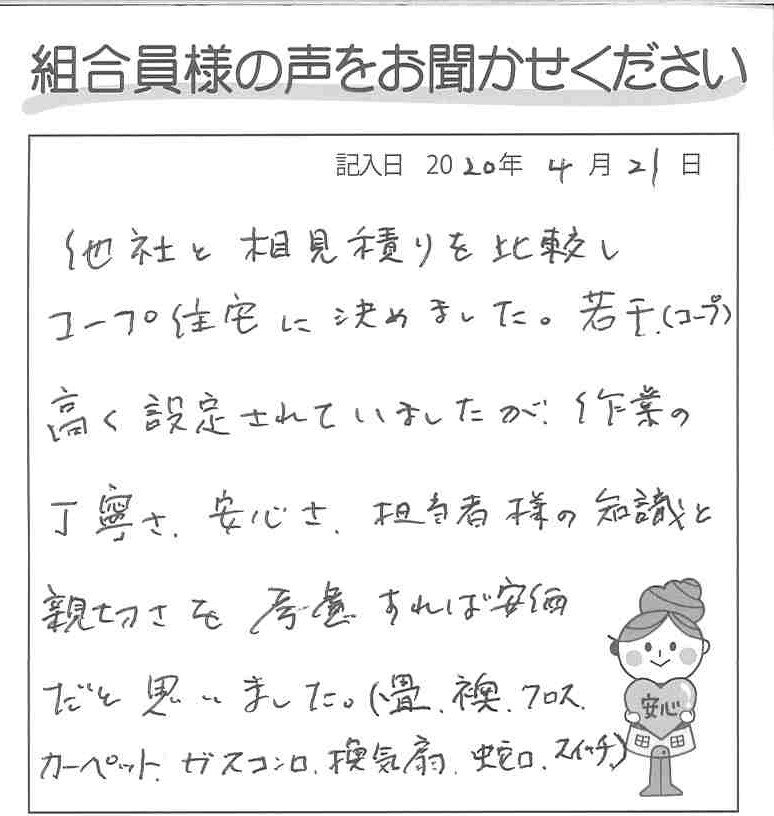 組合員様の声をお聞かせください
記入日 2020年 4月21日
他社と相見積りを比較し
コープ住宅に決めました。若干、(コープ)
高く設定されていましたが、作業の
丁寧さ、安心さ、担当者様の知識と
親切さを考慮すれば安価
だと思いました。(畳、襖、クロス、
カーペット、ガスコンロ、換気扇、蛇口、スイッチ)
安心